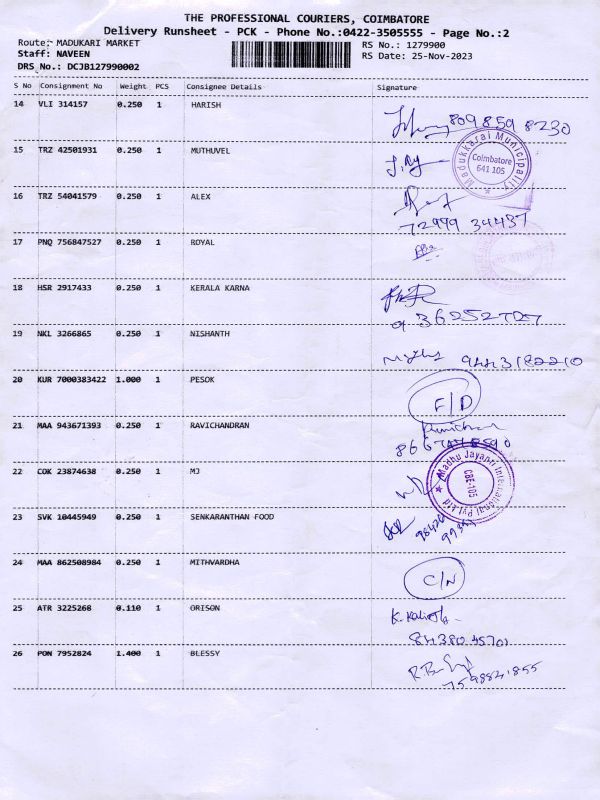 THE PROFESSIONAL COURIERS, COIMBATORE
Delivery Runsheet - PCK - Phone No.:0422-3505555 - Page No.:2
Route: MADUKARI MARKET
RS No.: 1279900
Staff: NAVEEN
RS Date: 25-Nov-2023
DRS No.: DCJB127990002
S No Consignment No Weight PCS Consignee Details Signature
14 VLI 314157 0.250 1 HARISH
809 859 8230
15 TRZ 42501931 0.250 1 MUTHUVEL
Madukkarai Municipality
Coimbatore
641 105
16 TRZ 54041579 0.250 1 ALEX
72999 34437
17 PNQ 756847527 0.250 1 ROYAL
18 HSR 2917433 0.250 1 KERALA KARNA
9 36252707
19 NKL 3266865 0.250 1 NISHANTH
9443182210
20 KUR 7000383422 1.000 1 PESOK
F/D
21 MAA 943671393 0.250 1 RAVICHANDRAN
22 COK 23874638 0.250 1 MJ
Madhu Jayanti International Pvt Ltd
CBE-105
23 SVK 10445949 0.250 1 SENKARANTHAN FOOD
24 MAA 862508984 0.250 1 MITHVARDHA
C/N
25 ATR 3225268 0.110 1 ORISON
84380 45701
26 PON 7952824 1.400 1 BLESSY
7598841855